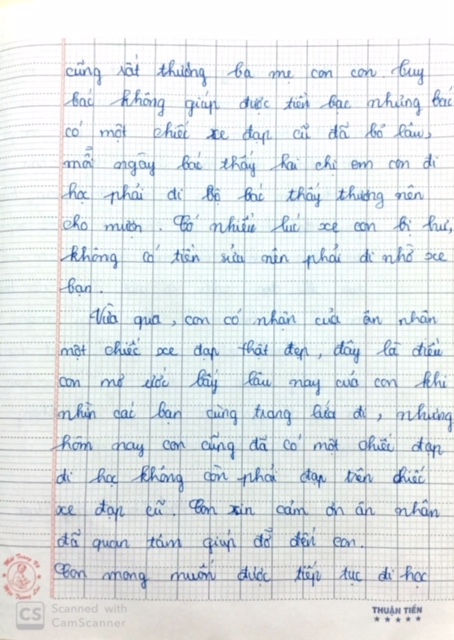 cũng rất thương ba mẹ con con tuy
bác không giúp được tiền bạc nhưng bác
có một chiếc xe đạp cũ đã bỏ lâu,
mỗi ngày bác thấy hai chị em con đi
học phải đi bộ bác thấy thương nên
cho mượn. Có nhiều lúc xe con bị hư,
không có tiền sửa nên phải đi nhờ xe
bạn.
Vừa qua, con có nhận của ân nhân
một chiếc xe đạp thật đẹp, đây là điều
con mơ ước bấy lâu nay của con khi
nhìn các bạn cùng trang lứa đi, nhưng
hôm nay con cũng đã có một chiếc đạp
đi học không còn phải đạp trên chiếc
xe đạp cũ. Con xin cảm ơn ân nhân
đã quan tâm giúp đỡ đến con.
Con mong muốn được tiếp tục đi học
CS Scanned with
CamScanner
THUẬN TIẾN